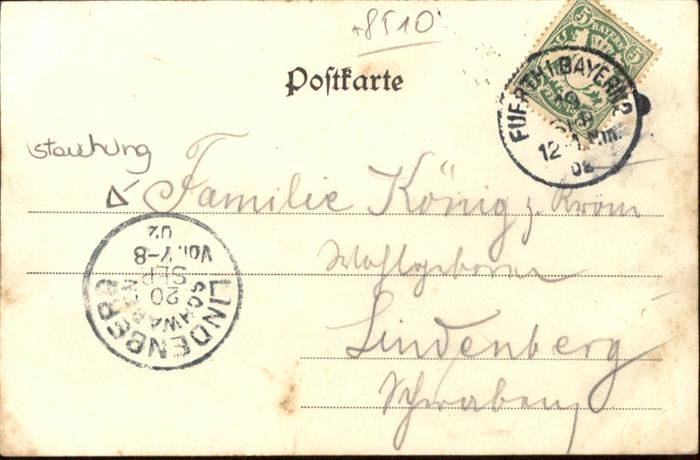 +8510
5 BAYERN 5
Postkarte
FUERTH I. BAYERN 2
12-1 Nm.
02
stauchung
Familie König z. Krone
Wohlgeboren
Lindenberg
Schwaben
LINDENBERG
SCHWABEN
20
SEP
Vor. 7-8
02